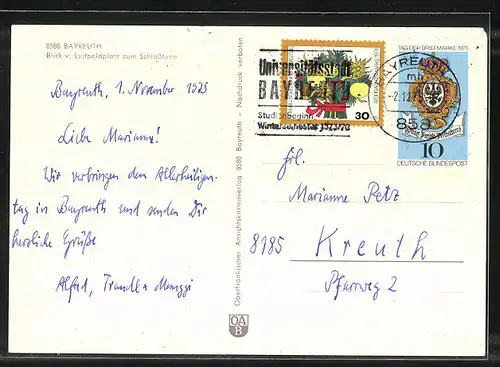 8580 BAYREUTH
Blick v. Luitpoldplatz zum Schloßturm
Bayreuth, 1. November 1975
Liebe Marianne!
Wir verbringen den Allerheiligen-
tag in Bayreuth und senden Dir
herzliche Grüße
Alfred, Traudl +
Oberfränkischer Ansichtskartenverlag 8580 Bayreuth - Nachdruck verboten
OA
B
Universitätsstadt
BAYREUTH
Studienbeginn
Wintersemester
30
TAG DER BRIEFMARKE 1975
10
DEUTSCHE BUNDESPOST
BAYREUTH
mh
858
Frl.
Marianne Petz
8185 Kreuth
Pfarrweg 2